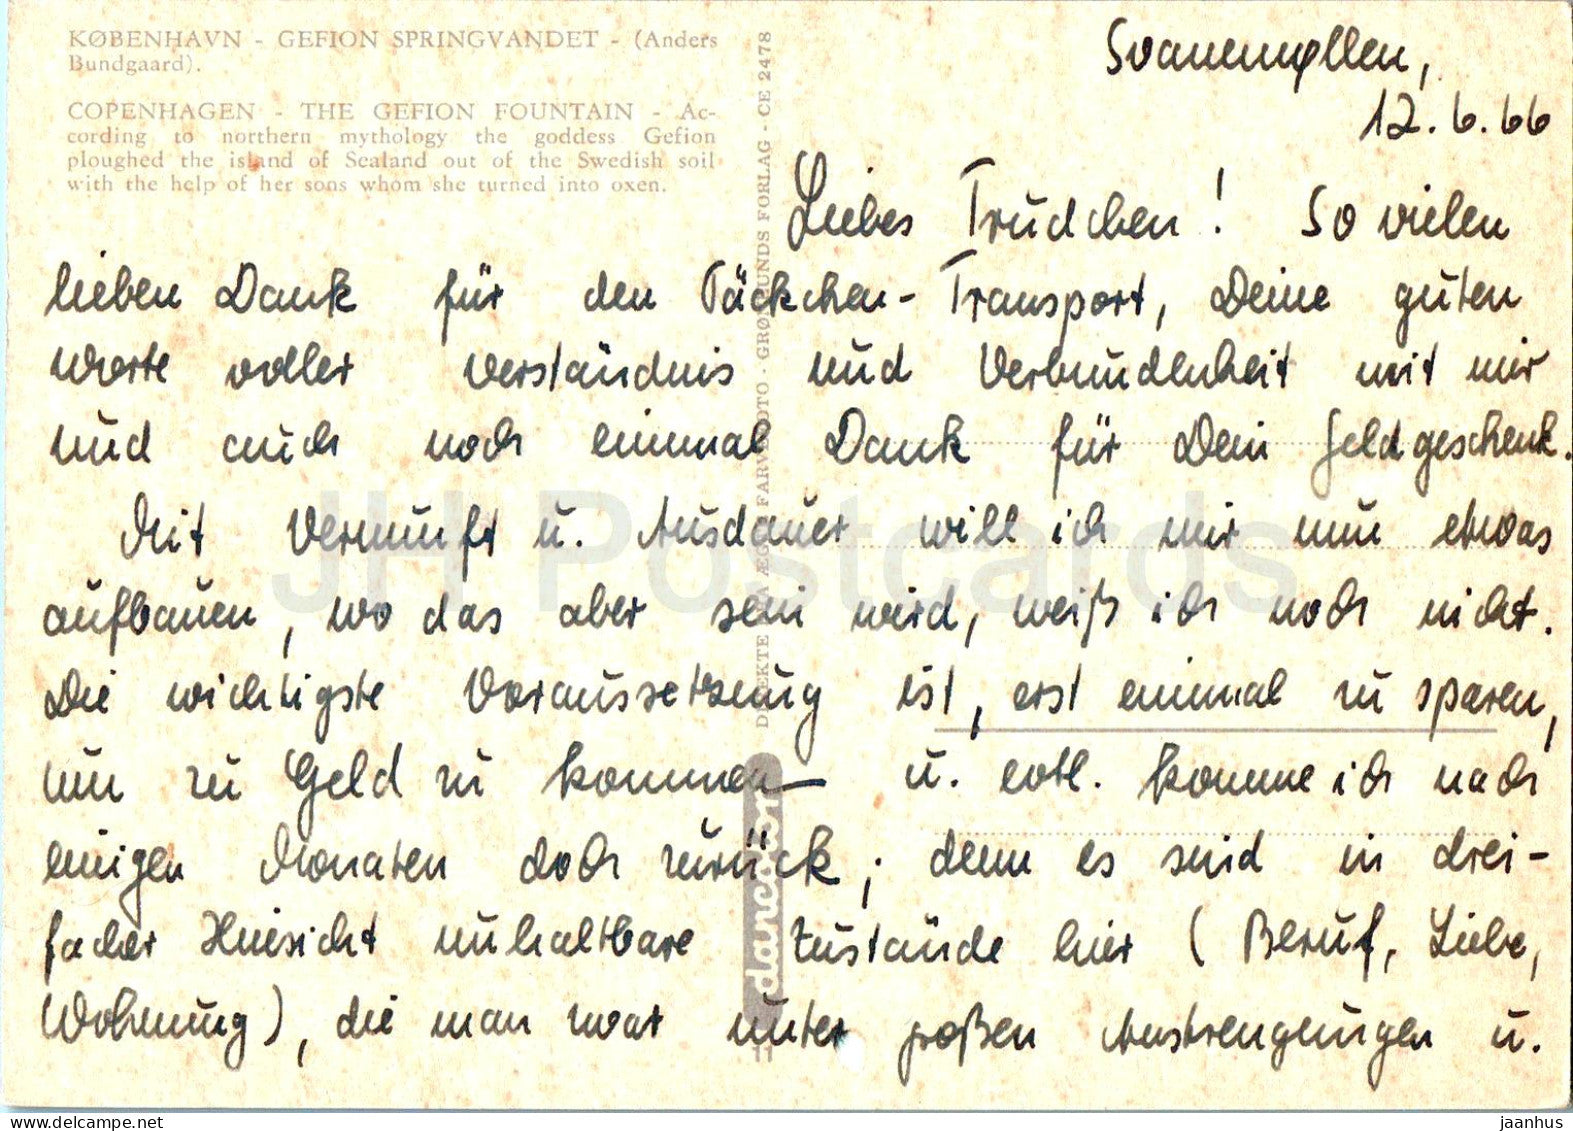 KØBENHAVN - GEFION SPRINGVANDET - (Anders
Bundgaard).
COPENHAGEN - THE GEFION FOUNTAIN - Ac-
cording to northern mythology the goddess Gefion
ploughed the island of Sealand out of the Swedish soil
with the help of her sons whom she turned into oxen.
Svanemøllen,
12.6.66
Liebes Trudchen! So vielen
lieben Dank für den Päckchen-Transport, Deine guten
Worte voller Verständnis und Verbundenheit mit mir
und auch noch einmal Dank für Dein Geldgeschenk.
Mit Vernunft u. Ausdauer will ich mir nun etwas
aufbauen, wo das aber sein wird, weiß ich noch nicht.
Die wichtigste Voraussetzung ist, erst einmal zu sparen,
um zu Geld zu kommen – u. evtl. komme ich nach
einigen Monaten doch zurück; denn es sind in drei-
facher Hinsicht unhaltbare Zustände hier (Beruf, Liebe,
Wohnung), die man zwar unter großen Anstrengungen u.
FARVEFOTO - GRØNLUNDS FORLAG - CE 2478
dancolor
11
JH Postcards
www.delcampe.net
jaanhus